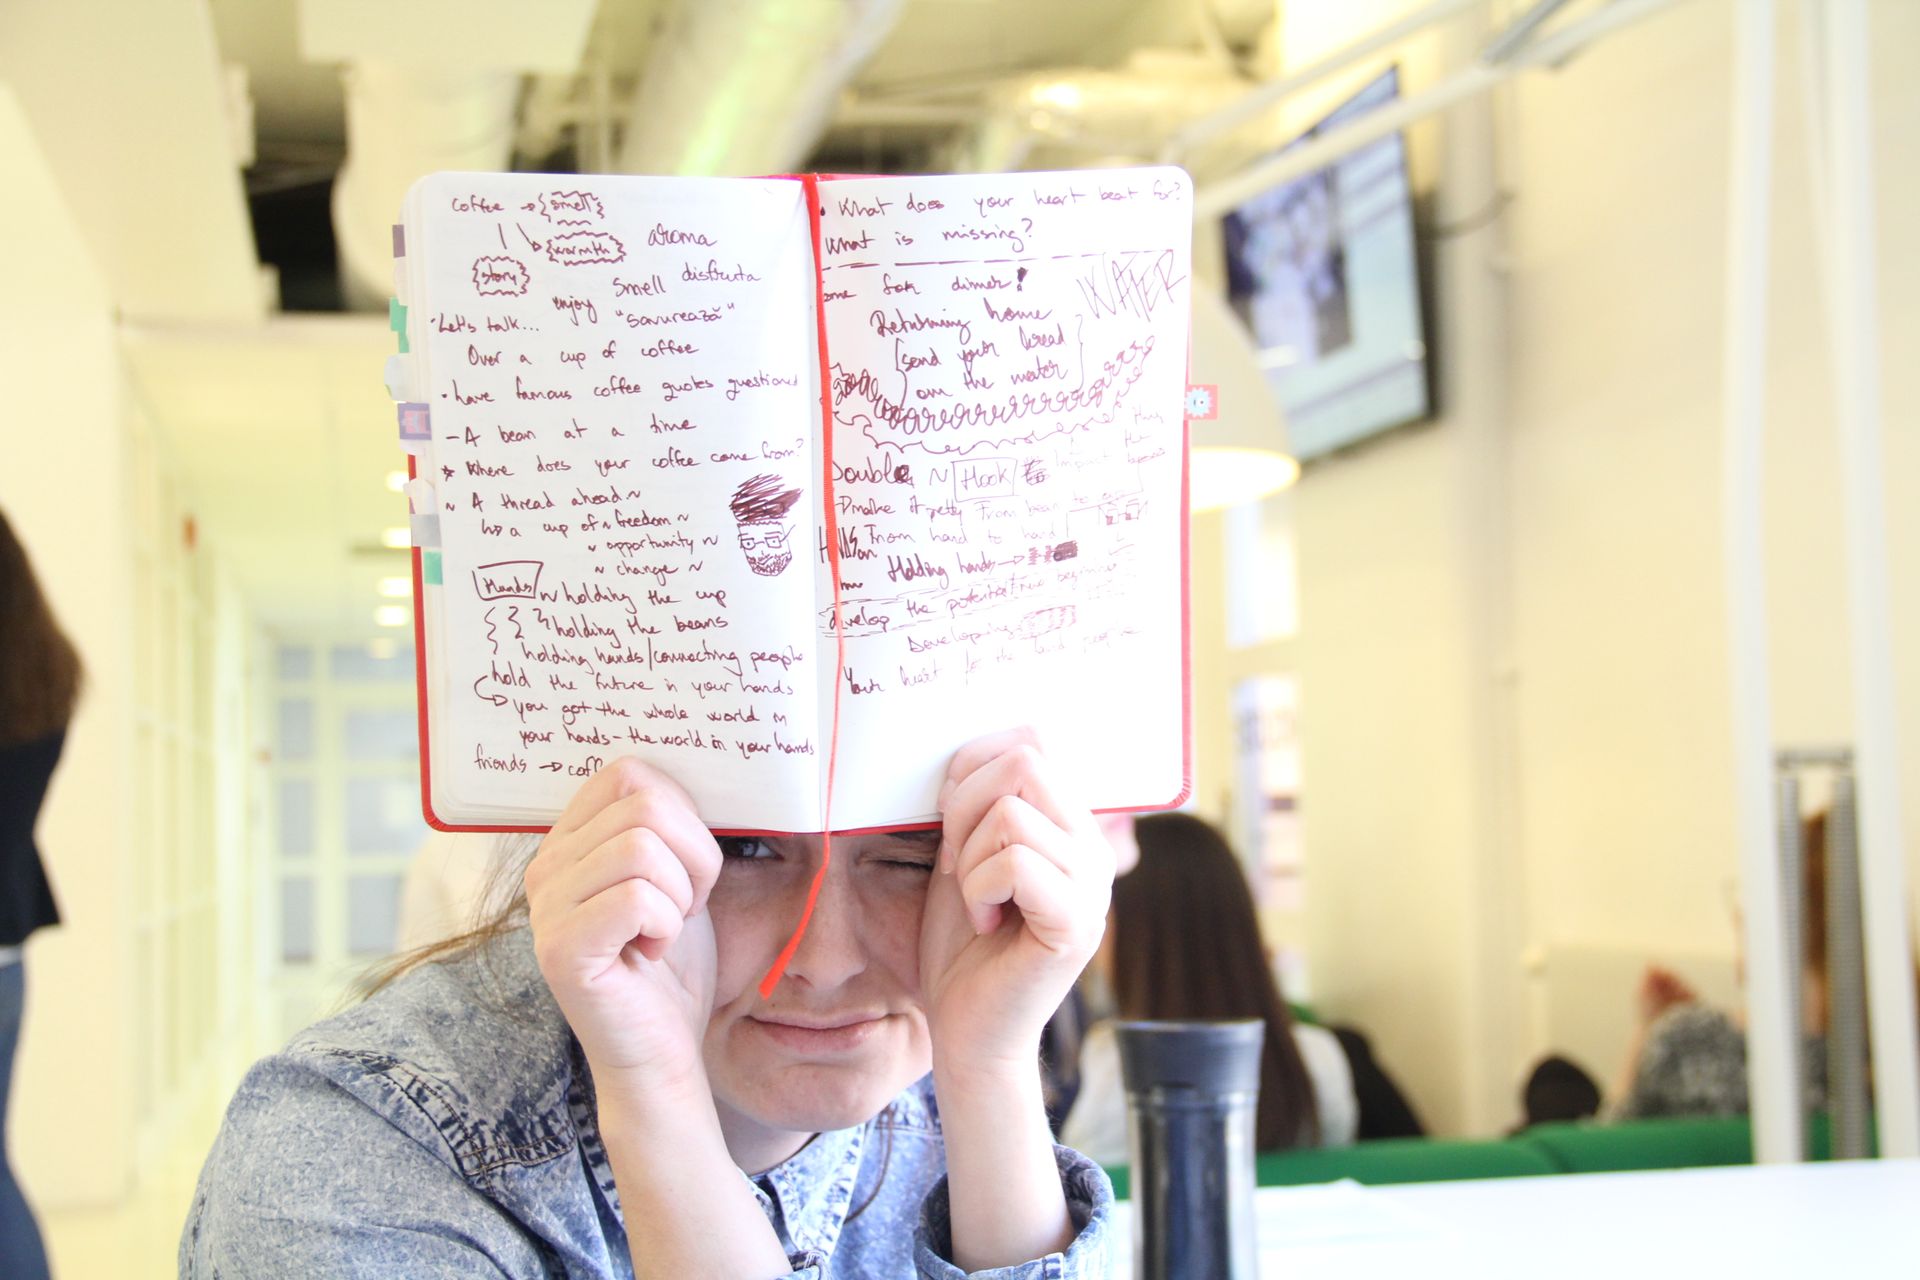 coffee → smell
warmth aroma
story
smell disfruta
enjoy "savurează"
• Let's talk...
Over a cup of coffee
• have famous coffee quotes questioned
– A bean at a time
* Where does your coffee come from?
~ A thread ahead ~
↳ a cup of ~ freedom ~
~ opportunity ~
~ change ~
Hands ~ holding the cup
holding the beans
holding hands/connecting people
hold the future in your hands
→ you got the whole world in
your hands - the world in your hands
friends → coff
• What does your heart beat for?
What is missing?
for dinner!
WATER
Returning home
send your bread
on the water
Double ~ Hook
Impact
make it pretty From bean to cup
From hand to hand
Holding hands →
develop the potential/new beginning
Developing
Your heart for the